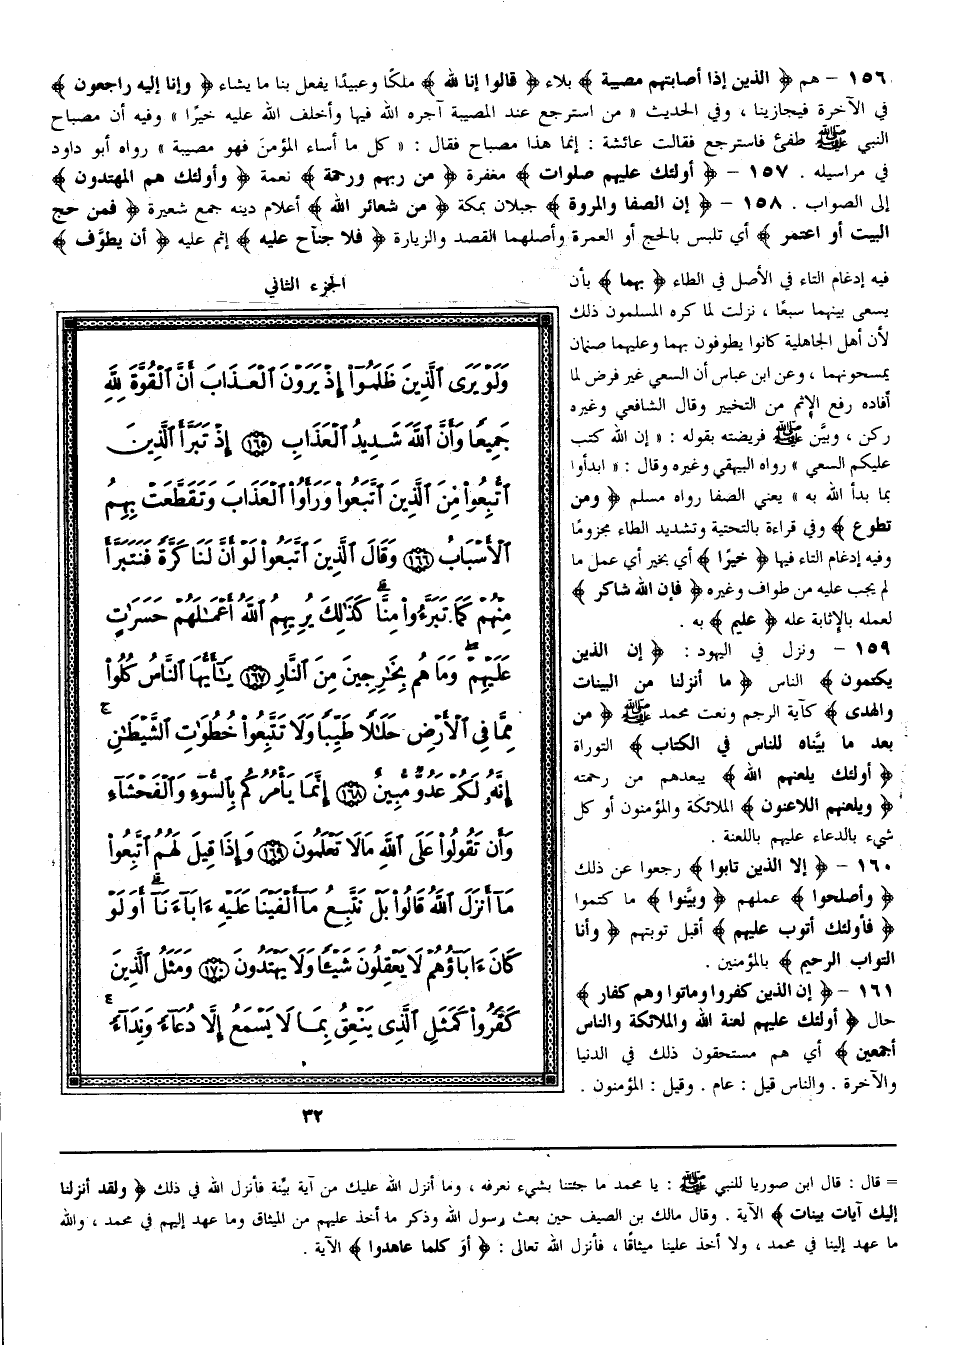 ١٥٦ - هم ﴿ الذين إذا أصابتهم مصيبة ﴾ بلاء ﴿ قالوا إنا لله ﴾ ملكًا وعبيدًا يفعل بنا ما يشاء ﴿ وإنا إليه راجعون ﴾
في الآخرة فيجازينا ، وفي الحديث « من استرجع عند المصيبة آجره الله فيها وأخلف الله عليه خيرًا » وفيه أن مصباح
النبي ﷺ طفئ فاسترجع فقالت عائشة : إنما هذا مصباح فقال : « كل ما أساء المؤمنَ فهو مصيبة » رواه أبو داود
في مراسيله . ١٥٧ - ﴿ أولئك عليهم صلوات ﴾ مغفرة ﴿ من ربهم ورحمة ﴾ نعمة ﴿ وأولئك هم المهتدون ﴾
إلى الصواب . ١٥٨ - ﴿ إن الصفا والمروة ﴾ جبلان بمكة ﴿ من شعائر الله ﴾ أعلام دينه جمع شعيرة ﴿ فمن حج
البيت أو اعتمر ﴾ أي تلبس بالحج أو العمرة وأصلهما القصد والزيارة ﴿ فلا جناح عليه ﴾ إثم عليه ﴿ أن يطوَّف ﴾
فيه إدغام التاء في الأصل في الطاء ﴿ بهما ﴾ بأن
يسعى بينهما سبعًا ، نزلت لما كره المسلمون ذلك
لأن أهل الجاهلية كانوا يطوفون بهما وعليهما صنمان
يمسحونهما ، وعن ابن عباس أن السعي غير فرض لما
أفاده رفع الإثم من التخيير وقال الشافعي وغيره
ركن ، وبيَّن ﷺ فريضته بقوله : « إن الله كتب
عليكم السعي » رواه البيهقي وغيره وقال : « ابدأوا
بما بدأ الله به » يعني الصفا رواه مسلم ﴿ ومن
تطوع ﴾ وفي قراءة بالتحتية وتشديد الطاء مجزومًا
وفيه إدغام التاء فيها ﴿ خيرًا ﴾ أي بخير أي عمل ما
لم يجب عليه من طواف وغيره ﴿ فإن الله شاكر ﴾
لعمله بالإثابة عله ﴿ عليم ﴾ به .
١٥٩ - ونزل في اليهود : ﴿ إن الذين
يكتمون ﴾ الناس ﴿ ما أنزلنا من البينات
والهدى ﴾ كآية الرجم ونعت محمد ﷺ ﴿ من
بعد ما بيَّناه للناس في الكتاب ﴾ التوراة
﴿ أولئك يلعنهم الله ﴾ يبعدهم من رحمته
﴿ ويلعنهم اللاعنون ﴾ الملائكة والمؤمنون أو كل
شيء بالدعاء عليهم باللعنة .
١٦٠ - ﴿ إلا الذين تابوا ﴾ رجعوا عن ذلك
﴿ وأصلحوا ﴾ عملهم ﴿ وبيَّنوا ﴾ ما كتموا
﴿ فأولئك أتوب عليهم ﴾ أقبل توبتهم ﴿ وأنا
التواب الرحيم ﴾ بالمؤمنين .
١٦١ - ﴿ إن الذين كفروا وماتوا وهم كفار ﴾
حال ﴿ أولئك عليهم لعنة الله والملائكة والناس
أجمعين ﴾ أي هم مستحقون ذلك في الدنيا
والآخرة . والناس قيل : عام . وقيل : المؤمنون .
الجزء الثاني
وَلَوْ يَرَى ٱلَّذِينَ ظَلَمُوٓا۟ إِذْ يَرَوْنَ ٱلْعَذَابَ أَنَّ ٱلْقُوَّةَ لِلَّهِ
جَمِيعًا وَأَنَّ ٱللَّهَ شَدِيدُ ٱلْعَذَابِ ١٦٥ إِذْ تَبَرَّأَ ٱلَّذِينَ
ٱتُّبِعُوا۟ مِنَ ٱلَّذِينَ ٱتَّبَعُوا۟ وَرَأَوُا۟ ٱلْعَذَابَ وَتَقَطَّعَتْ بِهِمُ
ٱلْأَسْبَابُ ١٦٦ وَقَالَ ٱلَّذِينَ ٱتَّبَعُوا۟ لَوْ أَنَّ لَنَا كَرَّةً فَنَتَبَرَّأَ
مِنْهُمْ كَمَا تَبَرَّءُوا۟ مِنَّا ۗ كَذَٰلِكَ يُرِيهِمُ ٱللَّهُ أَعْمَـٰلَهُمْ حَسَرَٰتٍ
عَلَيْهِمْ ۖ وَمَا هُم بِخَـٰرِجِينَ مِنَ ٱلنَّارِ ١٦٧ يَـٰٓأَيُّهَا ٱلنَّاسُ كُلُوا۟
مِمَّا فِى ٱلْأَرْضِ حَلَـٰلًا طَيِّبًا وَلَا تَتَّبِعُوا۟ خُطُوَٰتِ ٱلشَّيْطَـٰنِ ۚ
إِنَّهُۥ لَكُمْ عَدُوٌّ مُّبِينٌ ١٦٨ إِنَّمَا يَأْمُرُكُم بِٱلسُّوٓءِ وَٱلْفَحْشَآءِ
وَأَن تَقُولُوا۟ عَلَى ٱللَّهِ مَا لَا تَعْلَمُونَ ١٦٩ وَإِذَا قِيلَ لَهُمُ ٱتَّبِعُوا۟
مَآ أَنزَلَ ٱللَّهُ قَالُوا۟ بَلْ نَتَّبِعُ مَآ أَلْفَيْنَا عَلَيْهِ ءَابَآءَنَآ ۗ أَوَلَوْ
كَانَ ءَابَآؤُهُمْ لَا يَعْقِلُونَ شَيْـًٔا وَلَا يَهْتَدُونَ ١٧٠ وَمَثَلُ ٱلَّذِينَ
كَفَرُوا۟ كَمَثَلِ ٱلَّذِى يَنْعِقُ بِمَا لَا يَسْمَعُ إِلَّا دُعَآءً وَنِدَآءً ۚ
٣٢
= قال : قال ابن صوريا للنبي ﷺ : يا محمد ما جئتنا بشيء نعرفه ، وما أنزل الله عليك من آية بيِّنة فأنزل الله في ذلك ﴿ ولقد أنزلنا
إليك آيات بينات ﴾ الآية . وقال مالك بن الصيف حين بعث رسول الله وذكر ما أخذ عليهم من الميثاق وما عهد إليهم في محمد ، والله
ما عهد إلينا في محمد ، ولا أخذ علينا ميثاقًا ، فأنزل الله تعالى : ﴿ أوَ كلما عاهدوا ﴾ الآية .